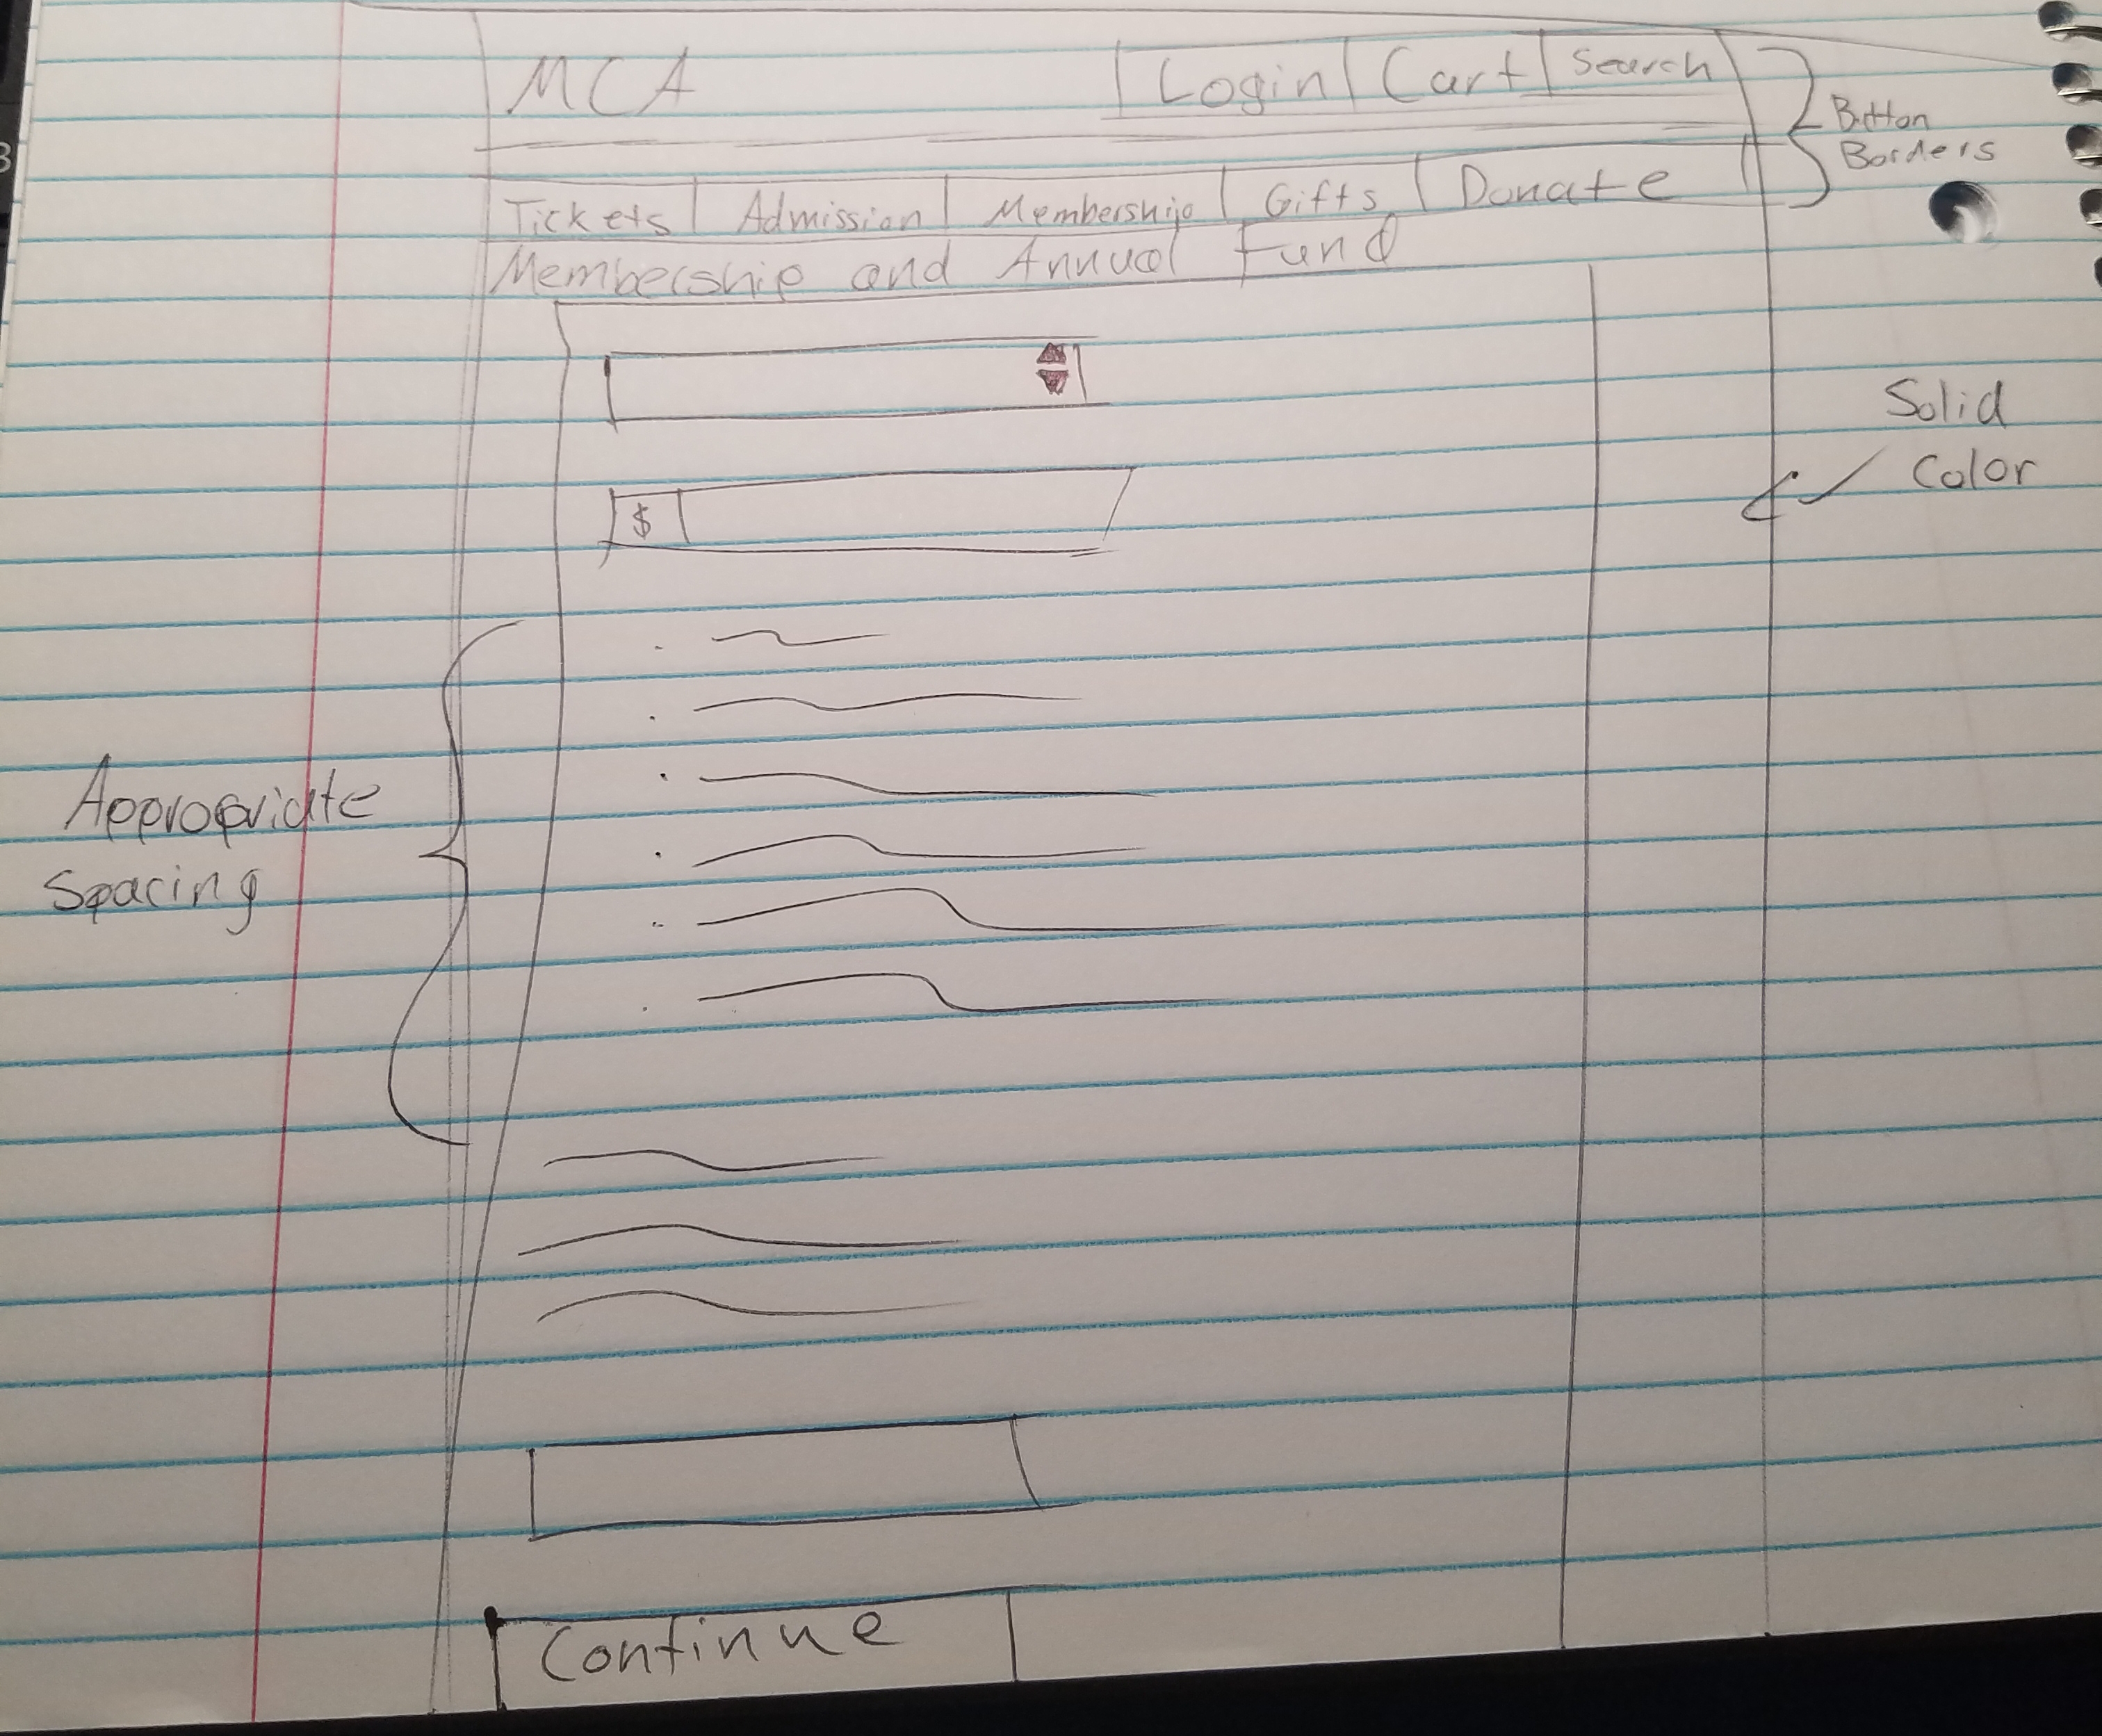 MCA
Login Cart Search
Button
Borders
Tickets Admission Membership Gifts Donate
Membership and Annual Fund
Solid
Color
$
Appropriate
Spacing
Continue